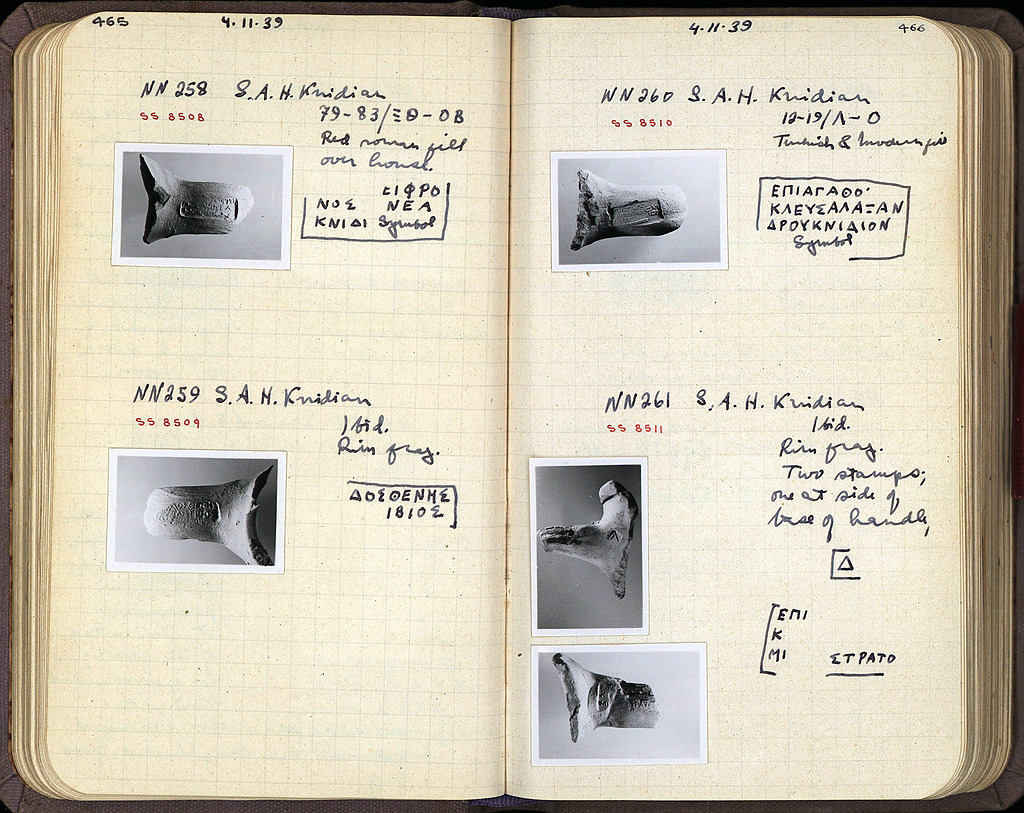 465
4·11·39
NN 258 S.A.H. Knidian
SS 8508
79-83/ΞΘ-ΟΒ
Red roman fill
over house.
ΕΙΦΡΟ
ΝΟΣ ΝΕΑ
ΚΝΙΔΙ Symbol
NN259 S.A.H. Knidian
SS 8509
Ibid.
Rim frag.
ΔΟΣΘΕΝΗΣ
ΙΒΙΟΣ
4·11·39
466
NN260 S.A.H. Knidian
SS 8510
12-19/Λ-Ο
Turkish & modern fill
ΕΠΙΑΓΑΘΟ·
ΚΛΕΥΣΑΛΑΞΑΝ
ΔΡΟΥΚΝΙΔΙΟΝ
Symbol
NN261 S.A.H. Knidian
SS 8511
Ibid.
Rim frag.
Two stamps;
one at side of
base of handle,
Δ
ΕΠΙ
Κ
ΜΙ ΣΤΡΑΤΟ